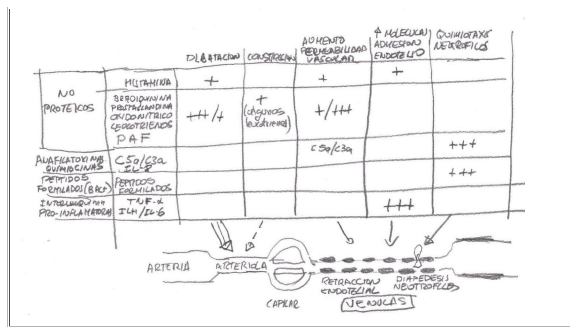 DILATACION CONSTRICCION AUMENTO PERMEABILIDAD VASCULAR ↑ MOLECULAS ADHESION ENDOTELIO QUIMIOTAXIS NEUTROFILOS
NO PROTEICOS
HISTAMINA + + +
BRADIQUININA
PROSTAGLANDINA
OXIDO NITRICO
LEUCOTRIENOS
PAF
+++/+ + (algunos leucotrienos) +/+++
ANAFILATOXINAS QUIMIOCINAS C5a/C3a IL-8 C5a/C3a +++
PEPTIDOS FORMILADOS (BACT) PEPTIDOS FORMILADOS +++
INTERLEUQUINA PRO-INFLAMATORIA TNF-α IL-1/IL-6 +++
ARTERIA ARTERIOLA
CAPILAR
RETRACCION ENDOTELIAL
DIAPEDESIS NEUTROFILOS
VENULAS